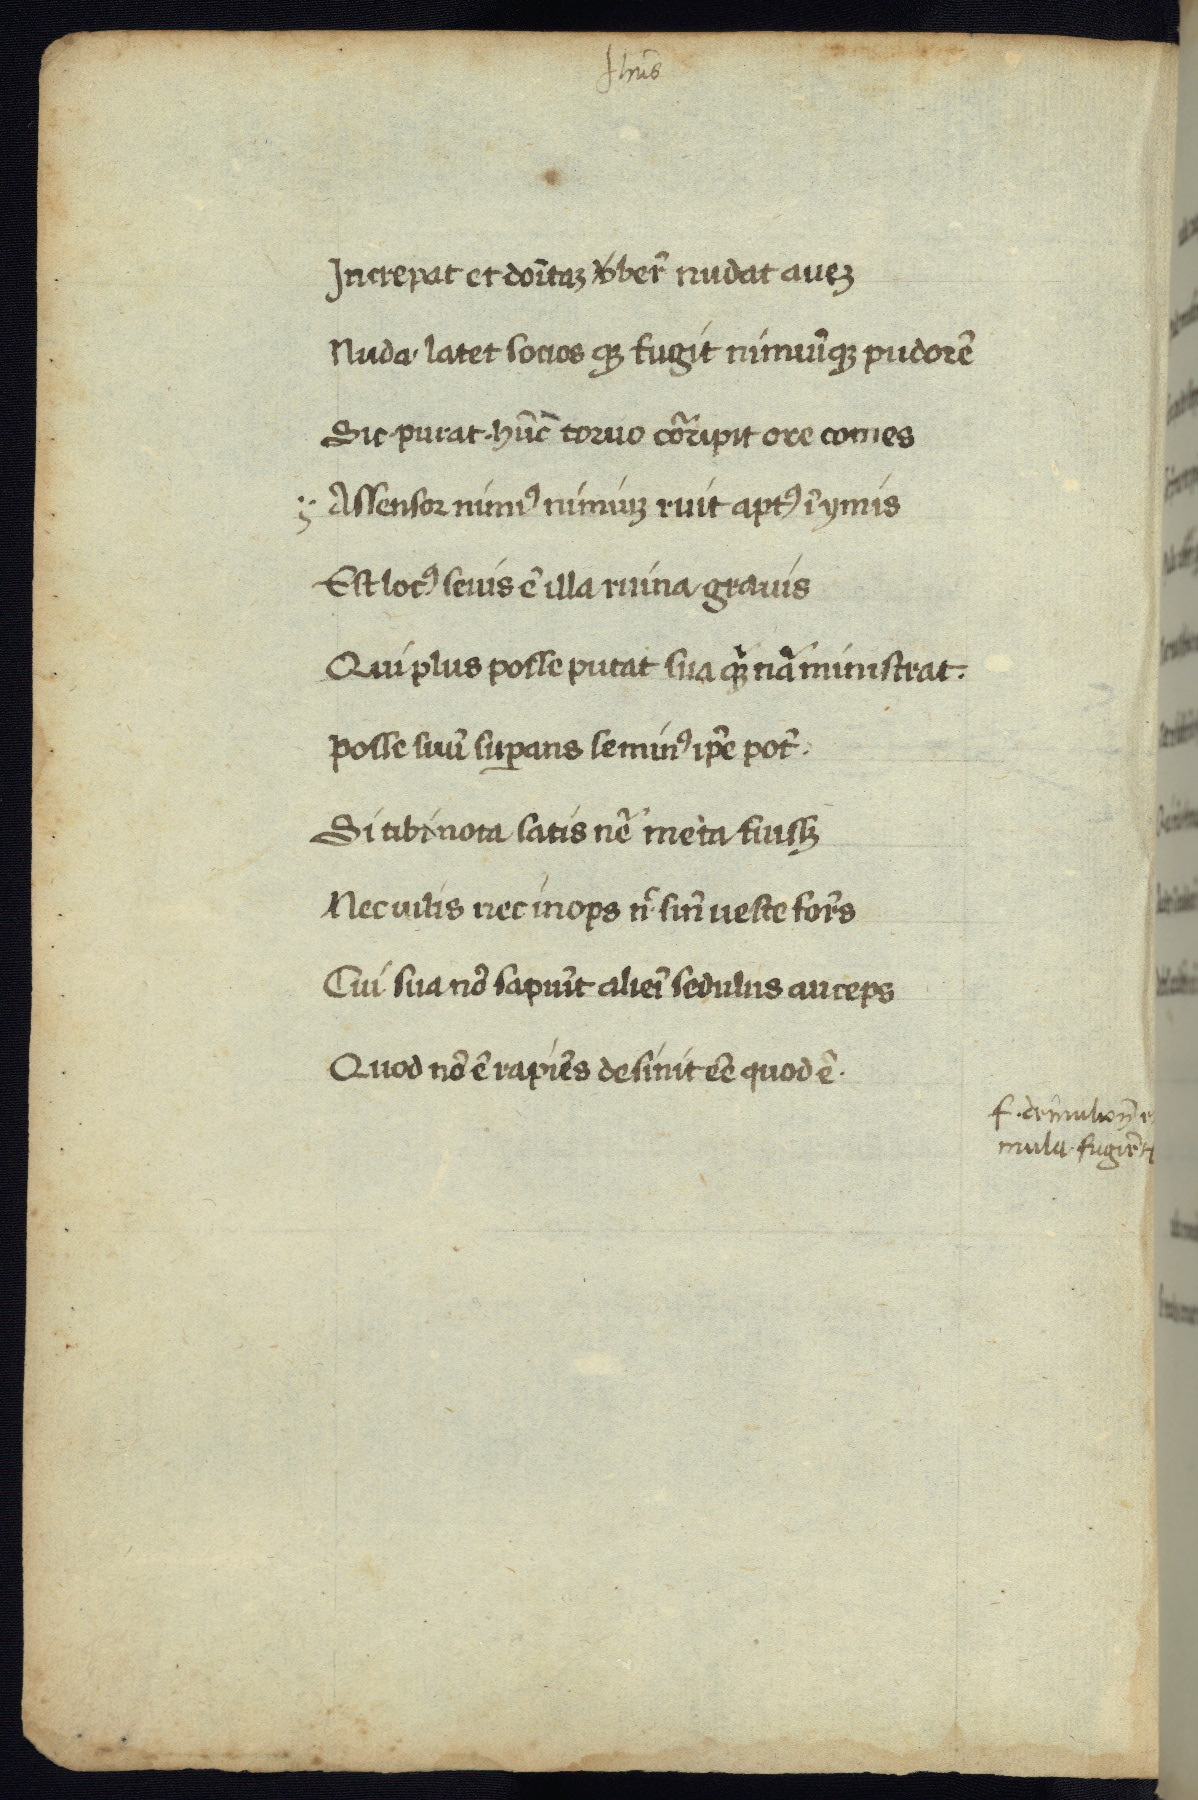 Jhũs
Increpat et doĩtaʒ vberẽ nudat aueʒ
Nuda latet socios qʒ fugit nimiũqʒ pudorẽ
Sic putat hũc toruo cõripit ore comes
Assensor nimiꝰ nimiuʒ ruit aptꝰ ĩ ymis
Est locꝰ leuis ẽ illa ruina grauis
Qui plus posse putat sua qʒ nã ministrat.
posse suũ suꝑans se minꝰ ip̃e pot̃.
Si tibi nota satis nẽ meta fuissʒ
Nec uilis nec inops n̄ sinẽ ueste fores
Cui sua nõ sapiũt alieĩ sedulus auceps
Quod nõ ẽ rapiẽs desinit eẽ quod ẽ.
f. de mulionẽ e
mula fugiẽti